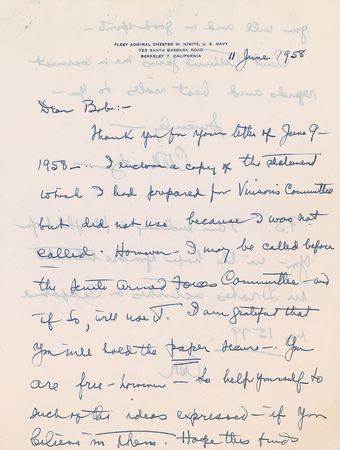 FLEET ADMIRAL CHESTER W. NIMITZ, U. S. NAVY
728 SANTA BARBARA ROAD
BERKELEY 7, CALIFORNIA
11 June 1958
Dear Bob:-
Thank you for your letter of June 9-
1958-. I enclose a copy of the statement
which I had prepared for Vinson's Committee
but did not use because I was not
called. However- I may be called before
the Senate Armed Forces Committee- and
if so, will use it. I am grateful that
you will hold the paper secure-. You
are free- however- to help yourself to
such of the ideas expressed- if you
believe in them. Hope this finds